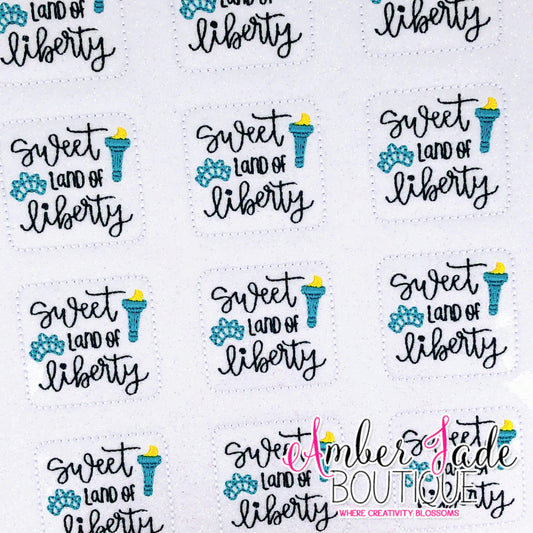 sweet
LAND OF
liberty
sweet
LAND OF
liberty
sweet
LAND OF
liberty
sweet
LAND OF
liberty
sweet
LAND OF
liberty
sweet
LAND OF
liberty
sweet
LAND OF
liberty
sweet
LAND OF
liberty
sweet
LAND OF
liberty
sweet
LAND OF
liberty
sweet
LAND OF
liberty
Amber Jade
BOUTIQUE
WHERE CREATIVITY BLOSSOMS